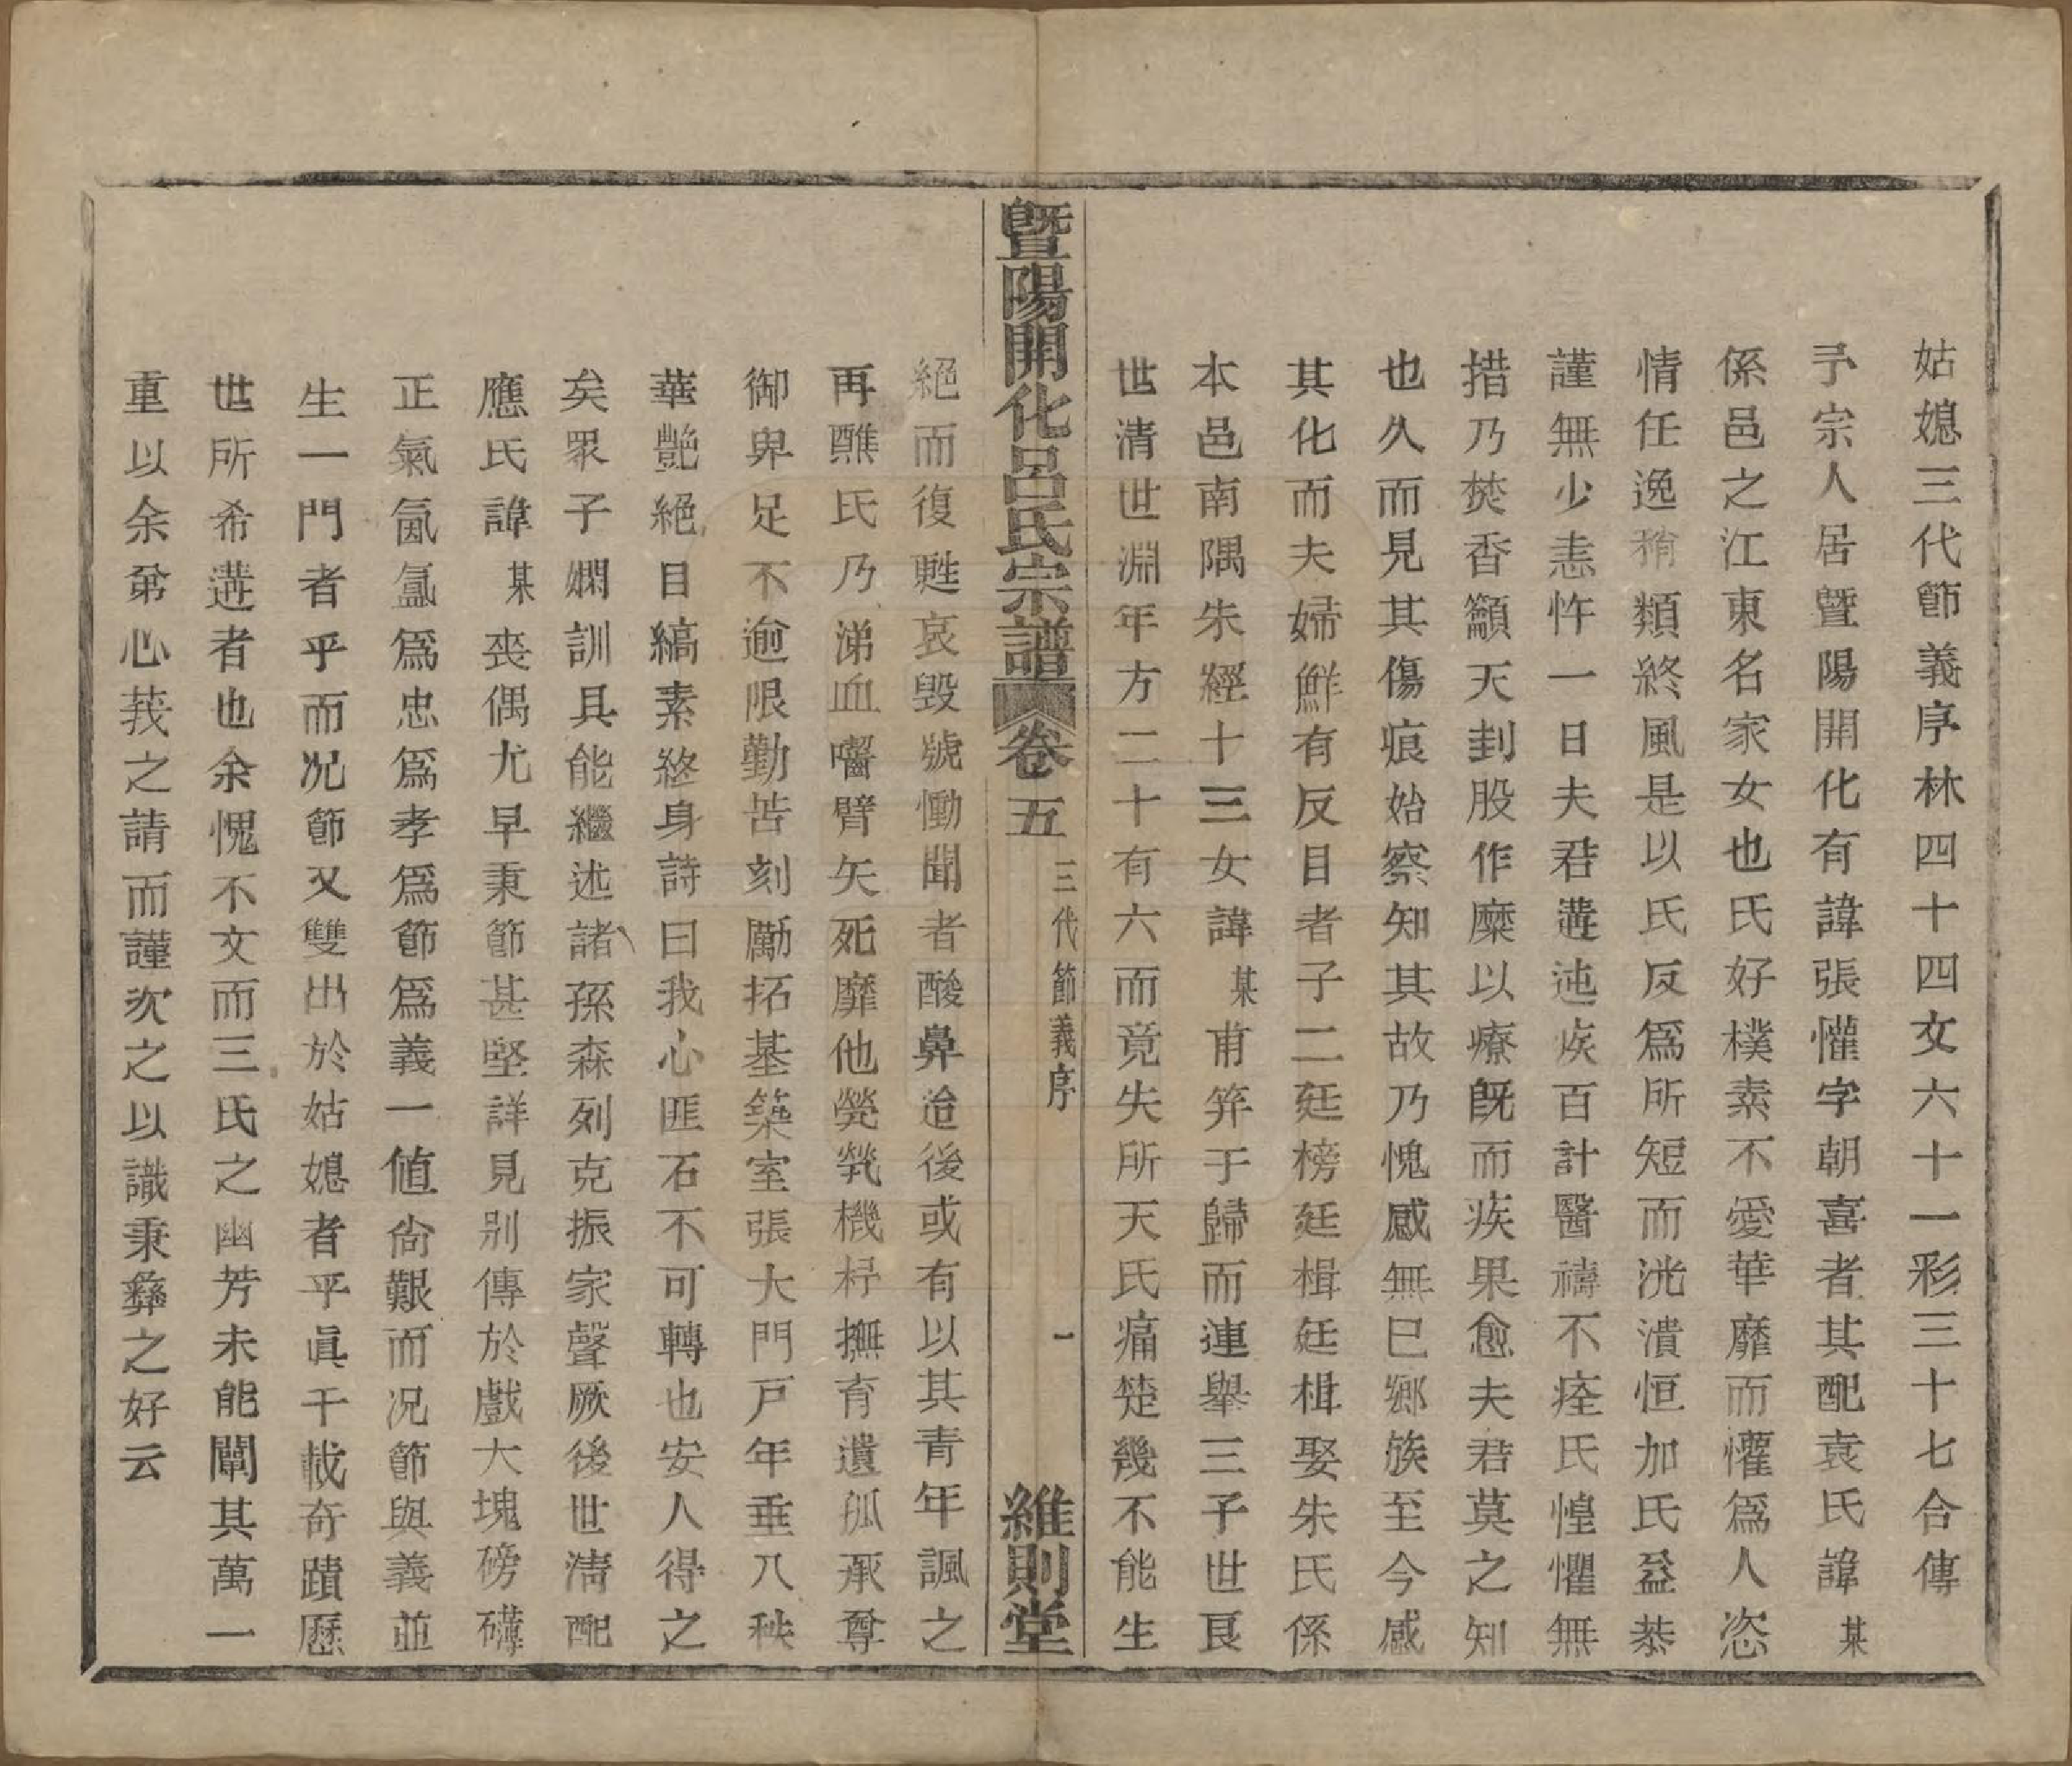 姑媳三代節義序林四十四文六十一彩三十七合傳
予宗人居暨陽開化有諱張懽字朝喜者其配袁氏諱某
係邑之江東名家女也氏好樸素不愛華靡而懽爲人恣
情任逸稍類終風是以氏反爲所短而洸潰恒加氏益恭
謹無少恚忤一日夫君遘迍疾百計醫禱不痊氏惶懼無
措乃焚香籲天刲股作糜以療旣而疾果愈夫君莫之知
也久而見其傷痕始察知其故乃愧感無已鄉簇至今感
其化而夫婦鮮有反目者子二廷榜廷楫廷楫娶朱氏係
本邑南隅朱經十三女諱某甫笄于歸而連舉三子世艮
世清世淵年方二十有六而竟失所天氏痛楚幾不能生
暨陽開化呂氏宗譜 卷五 三代節義序 一 維則堂
絕而復甦哀毀號慟聞者酸鼻迨後或有以其青年諷之
再醮氏乃涕血囓臂矢死靡他煢煢機杼撫育遺孤承尊
御卑足不逾限勤苦刻勵拓基築室張大門戸年垂八秩
華艷絕目縞素終身詩曰我心匪石不可轉也安人得之
矣眾子嫻訓具能繼述諸孫森列克振家聲厥後世清配
應氏諱某喪偶尤早秉節甚堅詳見別傳於戲大塊磅礴
正氣氤氳爲忠爲孝爲節爲義一値尙艱而况節與義並
生一門者乎而况節又雙出於姑媳者乎眞千載奇蹟歷
世所希遘者也余愧不文而三氏之幽芳未能闡其萬一
重以余弟心莪之請而謹次之以識秉彝之好云